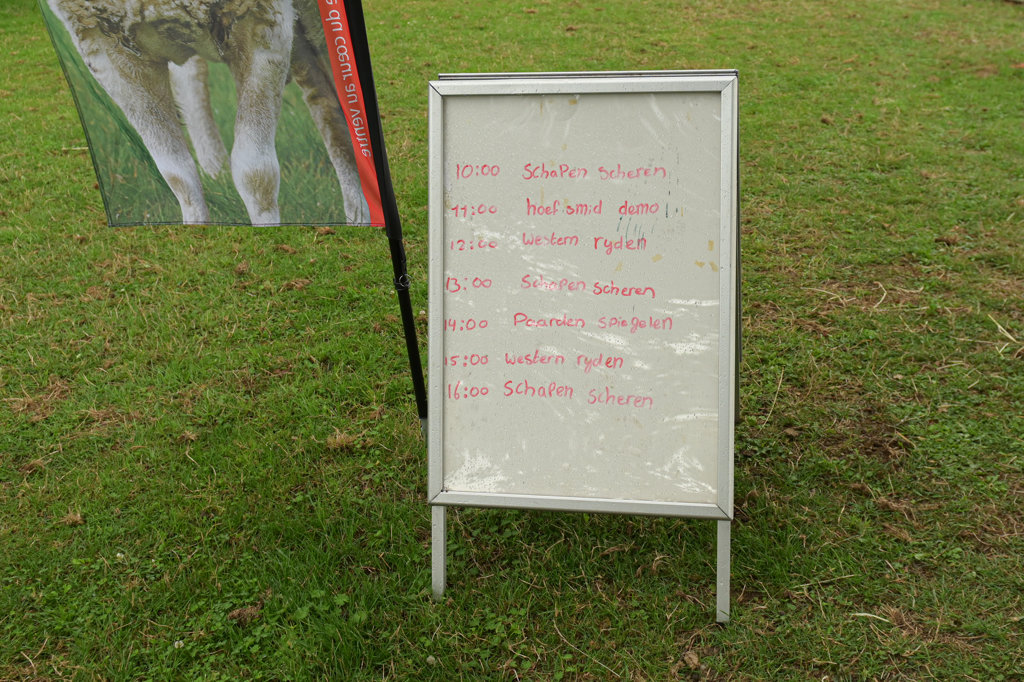 du cœur au ventre
10:00 Schapen scheren
11:00 hoefsmid demo
12:00 Western ryden
13:00 Schapen scheren
14:00 Paarden spiegelen
15:00 Western ryden
16:00 Schapen scheren